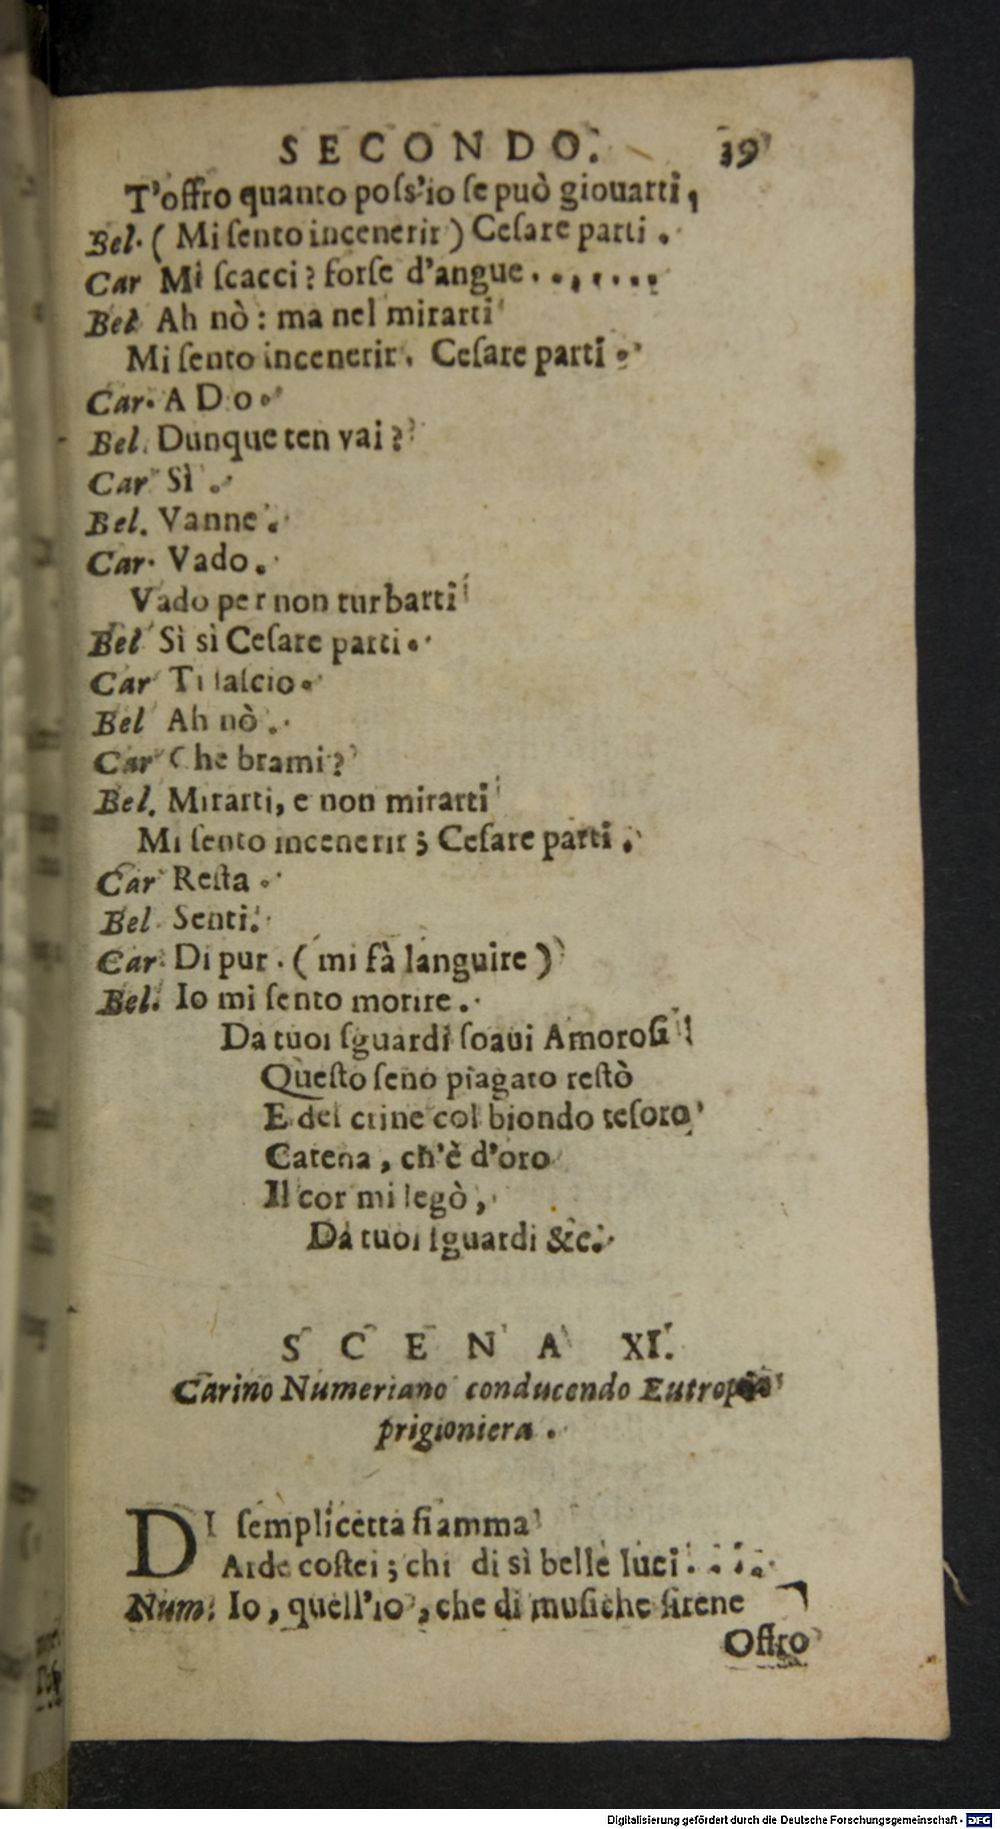 SECONDO. 39
T'offro quanto poſs'io ſe può giouarti,
Bel. ( Mi ſento incenerir ) Ceſare parti.
Car Mi ſcacci? forſe d'angue . . , . . . .
Bel Ah nò: ma nel mirarti
Mi ſento incenerir. Ceſare parti.
Car. A D o.
Bel. Dunque ten vai?
Car Sì.
Bel. Vanne.
Car. Vado.
Vado per non turbarti
Bel Sì sì Ceſare parti.
Car Ti laſcio.
Bel Ah nò.
Car Che brami?
Bel. Mirarti, e non mirarti
Mi ſento incenerir; Ceſare parti.
Car Reſta.
Bel Senti.
Car. Di pur. ( mi fà languire )
Bel. Io mi ſento morire.
Da tuoi ſguardi ſoaui Amoroſi
Queſto ſeno piagato reſtò
E del crine col biondo teſoro
Catena, ch'è d'oro
Il cor mi legò,
Da tuoi ſguardi &c.
SCENA XI.
Carino Numeriano conducendo Eutropia
prigioniera.
DI ſemplicetta fiamma
Arde coſtei; chi di sì belle luci . . . .
Num. Io, quell'io, che di muſiche ſirene
Oſtro
Digitalisierung gefördert durch die Deutsche Forschungsgemeinschaft - DFG